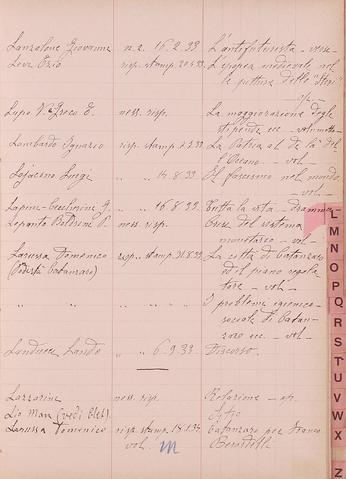 Lanzalone Giovanni n.r. 16.2.33 L'antifuturista - vers
Levi Ezio risp. stamp. 20.4.33 L'epopea medievale nel
le pitture dello "Steri"
Lupo V. Greco E. ness. risp. La maggiorazione degli
stipendi ecc - vol.
Lombardo Ignazio risp. stamp. 2.33 La Patria al di là dell'
Oceano. - vol -
Lojacono Luigi " 14.8.33 Il fascismo nel mondo
- vol -
Lapini-Ceccherini " 16.8.33 Tutta la vita - dramma
Lepanto Beltrami P. ness. risp. Crisi del sistema
monetario - vol -
Larussa Domenico risp. stamp. 31.8.33 La città di Catanzaro
(Podestà Catanzaro) ed il piano regola
tore - vol -
" " " " I problemi igienico-
sociali di Catan-
zaro ecc. - vol -
Landucci Lando " " 6.9.33 Discorso.
Lazzarini ness. risp. Relazione
Lio Max (vedi Bleb).
Larussa Domenico risp. stamp. 18.1.34 Catanzaro per Franco
vol. Berardelli
L
M
N
O
P
Q
R
S
T
U
V
W
X
Z